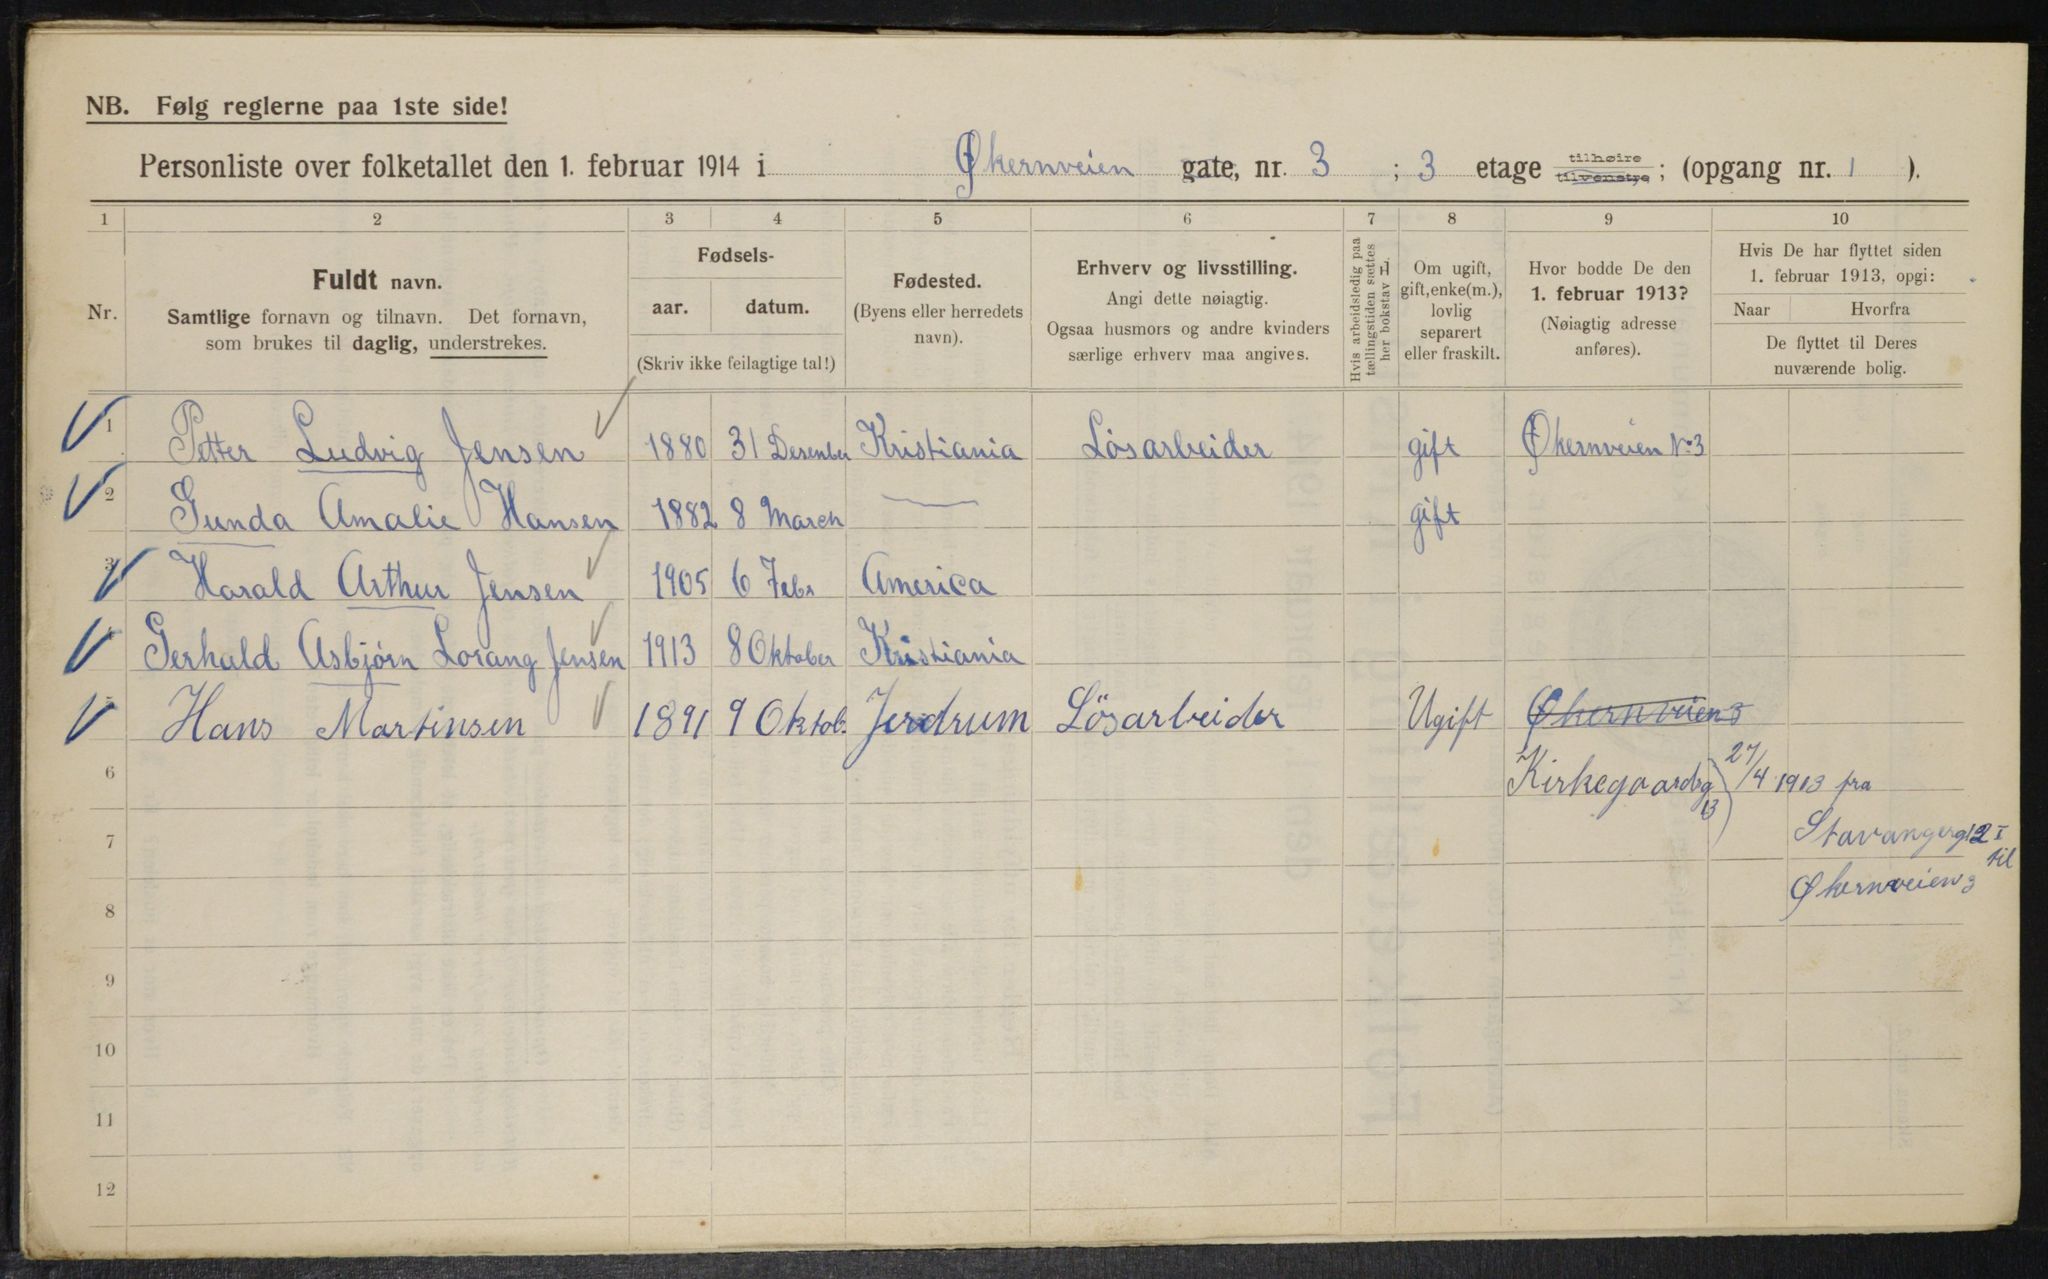 NB. Følg reglerne paa 1ste side!
Personliste over folketallet den 1. februar 1914 i Økernveien gate, nr. 3 ; 3 etage tilhøire tilvenstre ; (opgang nr. 1 ).
1 2 3 4 5 6 7 8 9 10
Nr.
Fuldt navn.
Samtlige fornavn og tilnavn. Det fornavn,
som brukes til daglig, understrekes.
Fødsels-
aar. datum.
(Skriv ikke feilagtige tal!)
Fødested.
(Byens eller herredets
navn).
Erhverv og livsstilling.
Angi dette nøiagtig.
Ogsaa husmors og andre kvinders
særlige erhverv maa angives.
Hvis arbeidsledig paa
tællingstiden sættes
her bokstav H.
Om ugift,
gift, enke(m.),
lovlig
separert
eller fraskilt.
Hvor bodde De den
1. februar 1913?
(Nøiagtig adresse
anføres).
Hvis De har flyttet siden
1. februar 1913, opgi:
Naar Hvorfra
De flyttet til Deres
nuværende bolig.
1 Petter Ludvig Jensen 1880 31 Desember Kristiania Løsarbeider gift Økernveien No 3
2 Gunda Amalie Hansen 1882 8 March — gift
3 Harald Arthur Jensen 1905 6 Febr America
4 Gerhald Asbjørn Lorang Jensen 1913 8 Oktober Kristiania
5 Hans Martinsen 1891 9 Oktob. Jerdrum Løsarbeider Ugift Økernveien 3
6 Kirkegaardsg 13 27/4 1913 fra
7 Stavangerg 12 I til
8 Økernveien 3
9
10
11
12